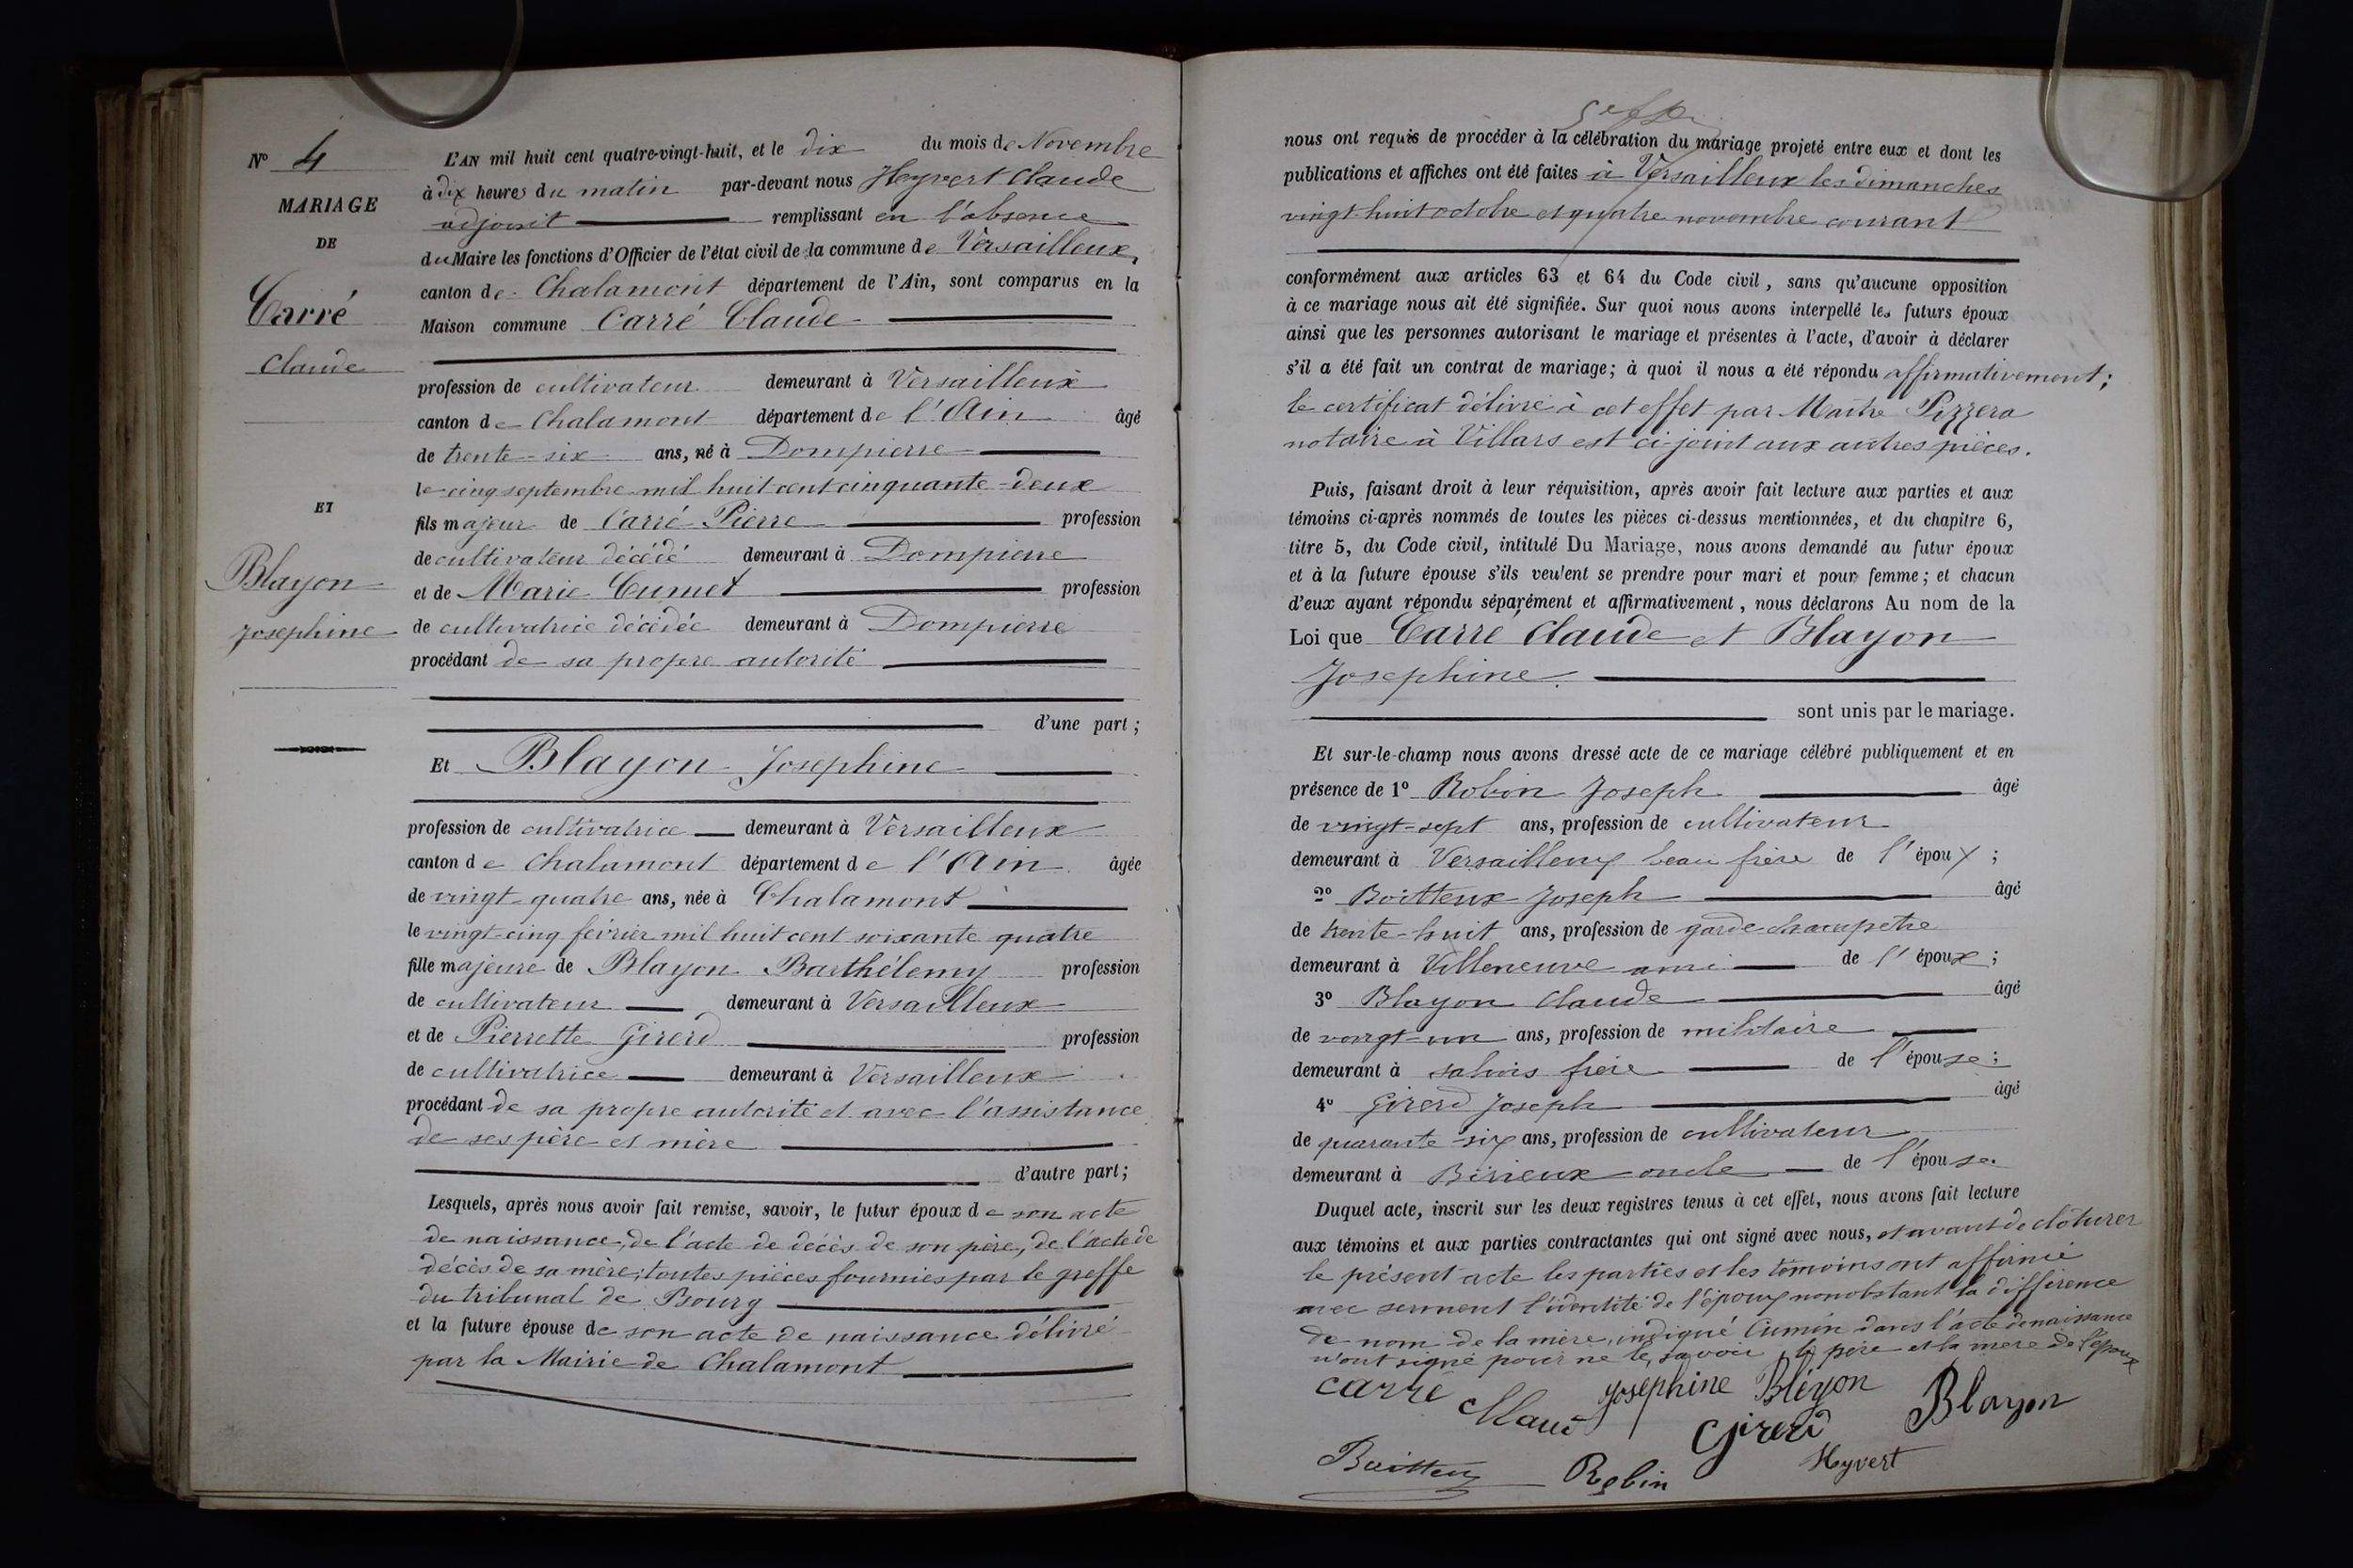 N° 4
MARIAGE
DE
Carré
Claude
ET
Blayon
Josephine
L'AN mil huit cent quatre-vingt-huit, et le dix du mois de Novembre
à dix heures du matin par-devant nous Heyvert Claude
adjoint remplissant en l'absence
du Maire les fonctions d'Officier de l'état civil de la commune de Versailleux,
canton de Chalamont département de l'Ain, sont comparus en la
Maison commune Carré Claude
profession de cultivateur demeurant à Versailleux
canton de Chalamont département de l'Ain âgé
de trente-six ans, né à Dompierre
le cinq septembre mil huit cent cinquante-deux
fils majeur de Carré Pierre profession
de cultivateur décédé demeurant à Dompierre
et de Marie Cumet profession
de cultivatrice décédée demeurant à Dompierre
procédant de sa propre autorité
d'une part ;
Et Blayon Josephine
profession de cultivatrice demeurant à Versailleux
canton de Chalamont département de l'Ain âgée
de vingt-quatre ans, née à Chalamont
le vingt-cinq février mil huit cent soixante quatre
fille majeure de Blayon Barthélemy profession
de cultivateur demeurant à Versailleux
et de Pierrette Girerd profession
de cultivatrice demeurant à Versailleux
procédant de sa propre autorité et avec l'assistance
de ses père et mère
d'autre part ;
Lesquels, après nous avoir fait remise, savoir, le futur époux de son acte
de naissance, de l'acte de décès de son père, de l'acte de
décès de sa mère, toutes pièces fournies par le greffe
du tribunal de Bourg
et la future épouse de son acte de naissance délivré
par la Mairie de Chalamont
nous ont requis de procéder à la célébration du mariage projeté entre eux et dont les
publications et affiches ont été faites à Versailleux les dimanches
vingt-huit octobre et quatre novembre courant
conformément aux articles 63 et 64 du Code civil, sans qu'aucune opposition
à ce mariage nous ait été signifiée. Sur quoi nous avons interpellé les futurs époux
ainsi que les personnes autorisant le mariage et présentes à l'acte, d'avoir à déclarer
s'il a été fait un contrat de mariage ; à quoi il nous a été répondu affirmativement ;
le certificat délivré à cet effet par Maître Pizzera
notaire à Villars est ci-joint aux autres pièces.
Puis, faisant droit à leur réquisition, après avoir fait lecture aux parties et aux
témoins ci-après nommés de toutes les pièces ci-dessus mentionnées, et du chapitre 6,
titre 5, du Code civil, intitulé Du Mariage, nous avons demandé au futur époux
et à la future épouse s'ils veulent se prendre pour mari et pour femme ; et chacun
d'eux ayant répondu séparément et affirmativement, nous déclarons Au nom de la
Loi que Carré Claude et Blayon
Josephine.
sont unis par le mariage.
Et sur-le-champ nous avons dressé acte de ce mariage célébré publiquement et en
présence de 1° Robin Joseph âgé
de vingt-sept ans, profession de cultivateur
demeurant à Versailleux beau frère de l'époux ;
2° Boitteux Joseph âgé
de trente-huit ans, profession de garde-champetre
demeurant à Villeneuve ami de l'époux ;
3° Blayon Claude âgé
de vingt-un ans, profession de militaire
demeurant à frère de l'épouse ;
4° Girerd Joseph âgé
de quarante-six ans, profession de cultivateur
demeurant à Birieux oncle de l'épouse.
Duquel acte, inscrit sur les deux registres tenus à cet effet, nous avons fait lecture
aux témoins et aux parties contractantes qui ont signé avec nous, et avant de clôturer
le présent acte les parties et les témoins ont affirmé
avec serment l'identité de l'époux nonobstant la différence
de nom de la mère, indiqué Cumin dans l'acte de naissance
n'ont signé pour ne le savoir le père et la mère de l'époux
carré Claud Josephine Bléyon Blayon
Girerd
Boitteux Robin Heyvert